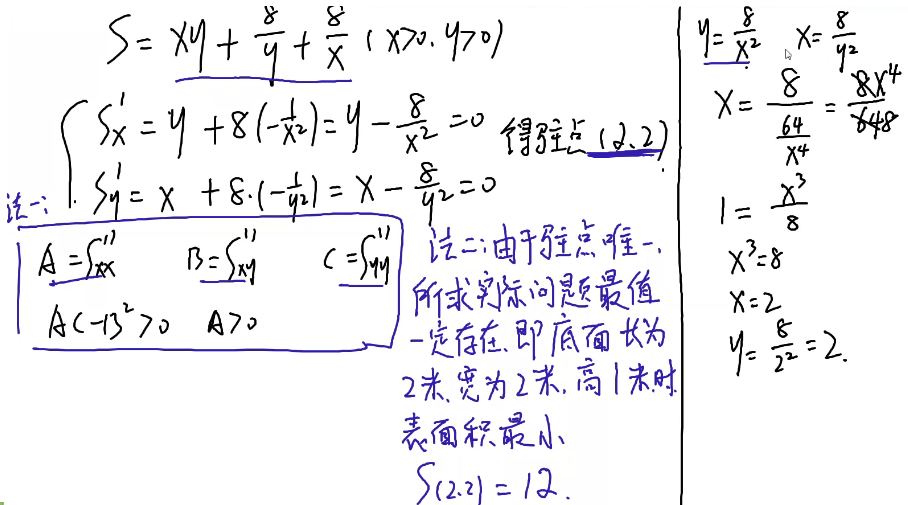 S = xy + 8/y + 8/x (x>0, y>0)
S'x = y + 8(-1/x²) = y - 8/x² = 0
得驻点 (2,2)
S'y = x + 8·(-1/y²) = x - 8/y² = 0
法一:
A = S''xx B = S''xy C = S''yy
AC-B²>0 A>0
法二:由于驻点唯一,
所求实际问题最值
一定存在,即底面长为
2米,宽为2米,高1米时
表面积最小
S(2,2) = 12.
y = 8/x² x = 8/y²
x = 8/(64/x⁴) = 8x⁴/648
1 = x³/8
x³=8
x=2
y = 8/2² = 2.